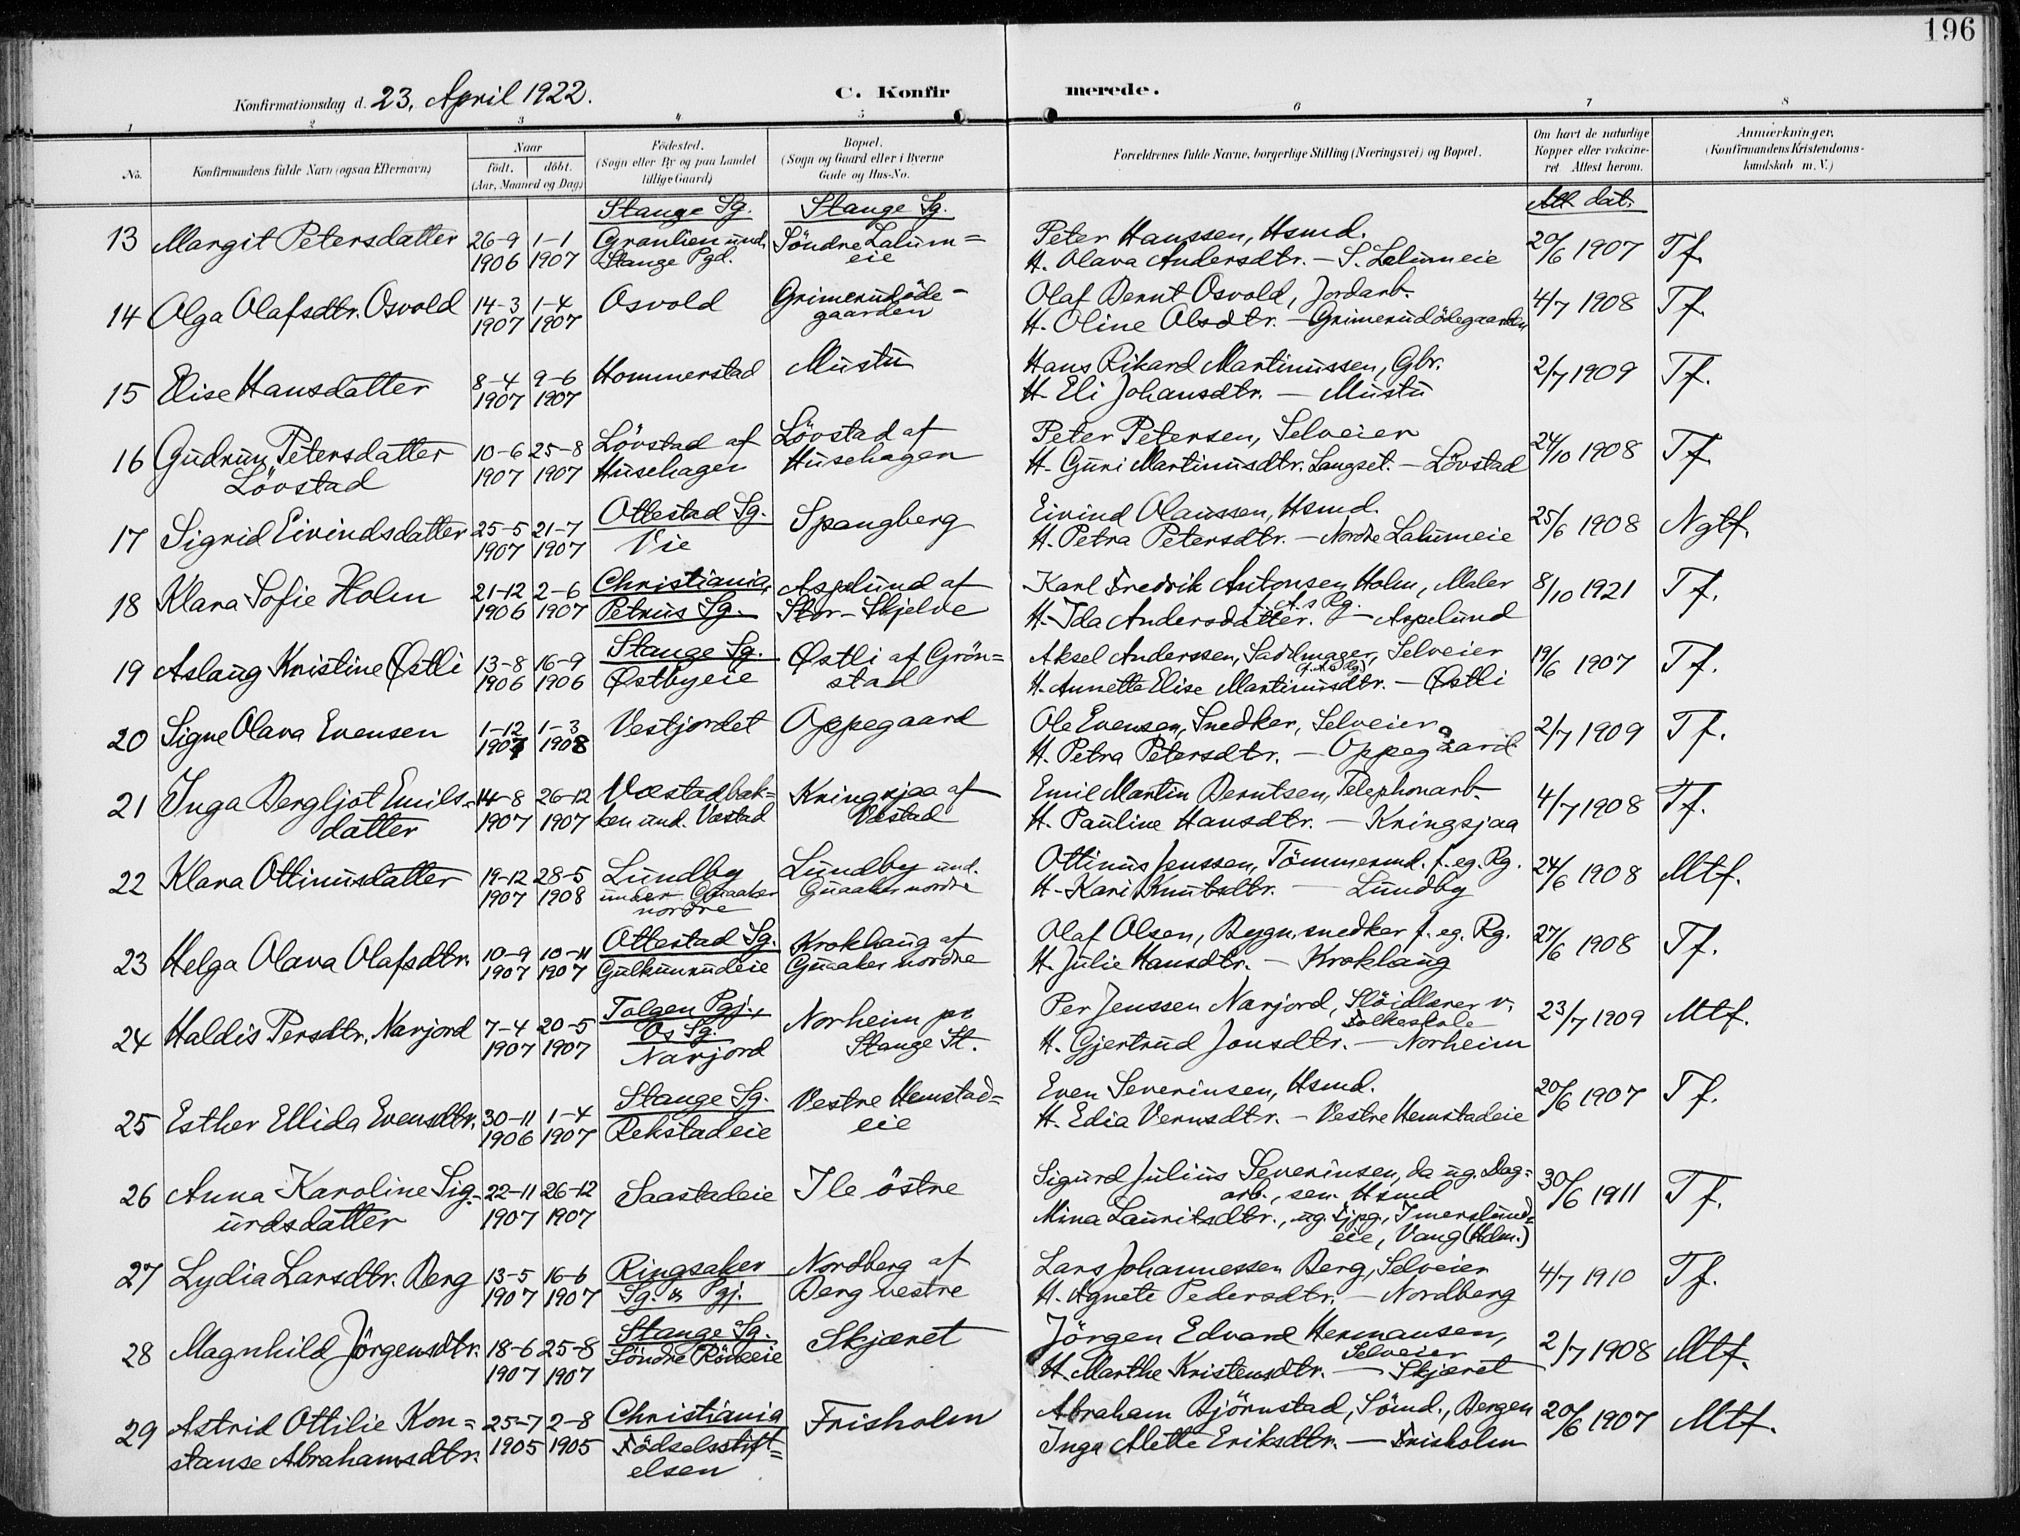 196
Konfirmationsdag d. 23. April 1922.
C. Konfirmerede.
1 2 3 4 5 6 7 8
No.
Konfirmandens fulde Navn (ogsaa Efternavn)
Naar
født. døbt.
(Aar, Maaned og Dag)
Fødested.
(Sogn eller By og paa Landet
tillige Gaard)
Bopæl.
(Sogn og Gaard eller i Byerne
Gade og Hus-No.
Forældrenes fulde Navne, borgerlige Stilling (Næringsvei) og Bopæl.
Om havt de naturlige
Kopper eller vakcine-
ret Attest herom.
Anmærkninger.
(Konfirmandens Kristendoms-
kundskab m. V.)
Stange Sg. Stange Sg. Att. dat.
13 Margit Petersdatter 26-9 1906 1-1 1907 Granlien und. Stange Pgd. Söndre Lalum=eie Peter Hanssen, Hsmd.
H. Olava Andersdtr. – S. Lalumeie 20/6 1907 Tf.
14 Olga Olafsdtr. Osvold 14-3 1907 1-4 1907 Osvold Grimerudöde-gaarden Olaf Bernt Osvold, Jordarb.
H. Oline Olsdtr. – Grimerudödegaarden 4/7 1908 Tf.
15 Elise Hansdatter 8-4 1907 9-6 1907 Hommerstad Mustu Hans Rikard Martinussen, Gbr.
H. Eli Johansdtr. – Mustu 2/7 1909 Tf.
16 Gudrun Petersdatter Lövstad 10-6 1907 25-8 1907 Lövstad af Husehagen Lövstad af Husehagen Peter Petersen, Selveier
H. Guri Martinusdtr. Langset. – Lövstad 24/10 1908 Tf.
17 Sigrid Eivindsdatter 25-5 1907 21-7 1907 Ottestad Sg. Vie Spangberg Eivind Olaussen, Hsmd.
H. Petra Petersdtr. – Nordre Lalumeie 25/6 1908 Ngtf.
18 Klara Sofie Holm 21-12 1906 2-6 1907 Christiania, Petrus Sg. Asplund af Stor-Skjelve Karl Fredrik Antonsen Holm, Maler
H. Ida Andersdatter. f. A.s Rg. – Aspelund 8/10 1921 Tf.
19 Aslaug Kristine Østli 13-8 1906 16-9 1906 Stange Sg. Østbyeie Østli af Grön=stad Aksel Anderssen, Sadlmager, Selveier
H. Annette Elise Martinusdtr. (f. A.s Rg.) – Østli 19/6 1907 Tf.
20 Signe Olava Evensen 1-12 1907 1-3 1908 Vestjordet Oppegaard Ole Evensen, Snedker, Selveier
H. Petra Petersdtr. – Oppegaard 2/7 1909 Tf.
21 Inga Bergljot Emils-datter 14-8 1907 26-12 1907 Væstadbak=ken und. Væstad Kringsjaa af Væstad Emil Martin Berntsen, Telephonarb.
H. Pauline Hansdtr. – Kringsjaa 4/7 1908 Tf.
22 Klara Ottinusdatter 19-12 1907 28-5 1908 Lundby under Guaaker nordre Lundby und. Guaaker nordre Ottinus Jenssen, Tömmermd. f. eg. Rg.
H. Kari Knutsdtr. – Lundby 24/6 1908 Mtf.
23 Helga Olava Olafsdtr. 10-9 1907 10-11 1907 Ottestad Sg. Gulkunrudeie Krokhaug af Guaaker nordre Olaf Olsen, Bygn.snedker f. eg. Rg.
H. Julie Hansdtr. – Krokhaug 27/6 1908 Tf.
24 Haldis Persdtr. Narjord 7-4 1907 20-5 1907 Tolgen Pgj., Os Sg. Narjord Norheim pr. Stange St. Per Jenssen Narjord, Slöidlærer v. Folkeskole
H. Gjertrud Jonsdtr. – Norheim 23/7 1909 Mtf.
25 Esther Ellida Evensdtr. 30-11 1906 1-4 1907 Stange Sg. Rekstadeie Vestre Hemstad=eie Even Severinsen, Hsmd.
H. Edia Vernsdtr. – Vestre Hemstadeie 20/6 1907 Tf.
26 Anna Karoline Sig-urdsdatter 22-11 1907 26-12 1907 Saastadeie Ile östre Sigurd Julius Severinsen, da ug. Dag=
arb., sen. Hsmd
Mina Lauritsdtr., ug. Tjpg, Imerslund=
eie, Vang (Hdm.) 30/6 1911 Tf.
27 Lydia Larsdtr. Berg 13-5 1907 16-6 1907 Ringsaker Sg. & Pgj. Nordberg af Berg vestre Lars Johannessen Berg, Selveier
H. Agnete Pedersdtr. – Nordberg 4/7 1910 Tf.
28 Magnhild Jörgensdtr. 18-6 1907 25-8 1907 Stange Sg. Söndre Röneeie Skjæret Jörgen Edvard Hermansen, Selveier
H. Marthe Kristensdtr. – Skjæret 2/7 1908 Mtf.
29 Astrid Ottilie Kon=stanse Abrahamsdtr. 25-7 1905 2-8 1905 Christiania Födselsstift=elsen Frisholm Abraham Björnstad, Sömd., Bergen
Inga Alette Eriksdtr. – Frisholm 20/6 1907 Mtf.